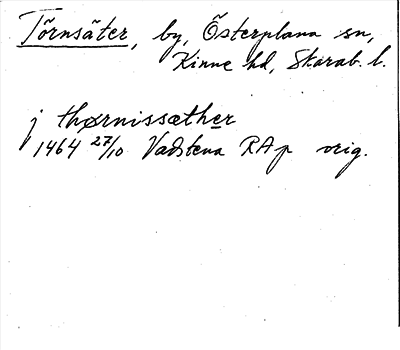 Törnsäter, by, Österplana sn,
Kinne hd, Skarab. l.
j thørnissæther
1464 27/10 Vadstena RAp orig.